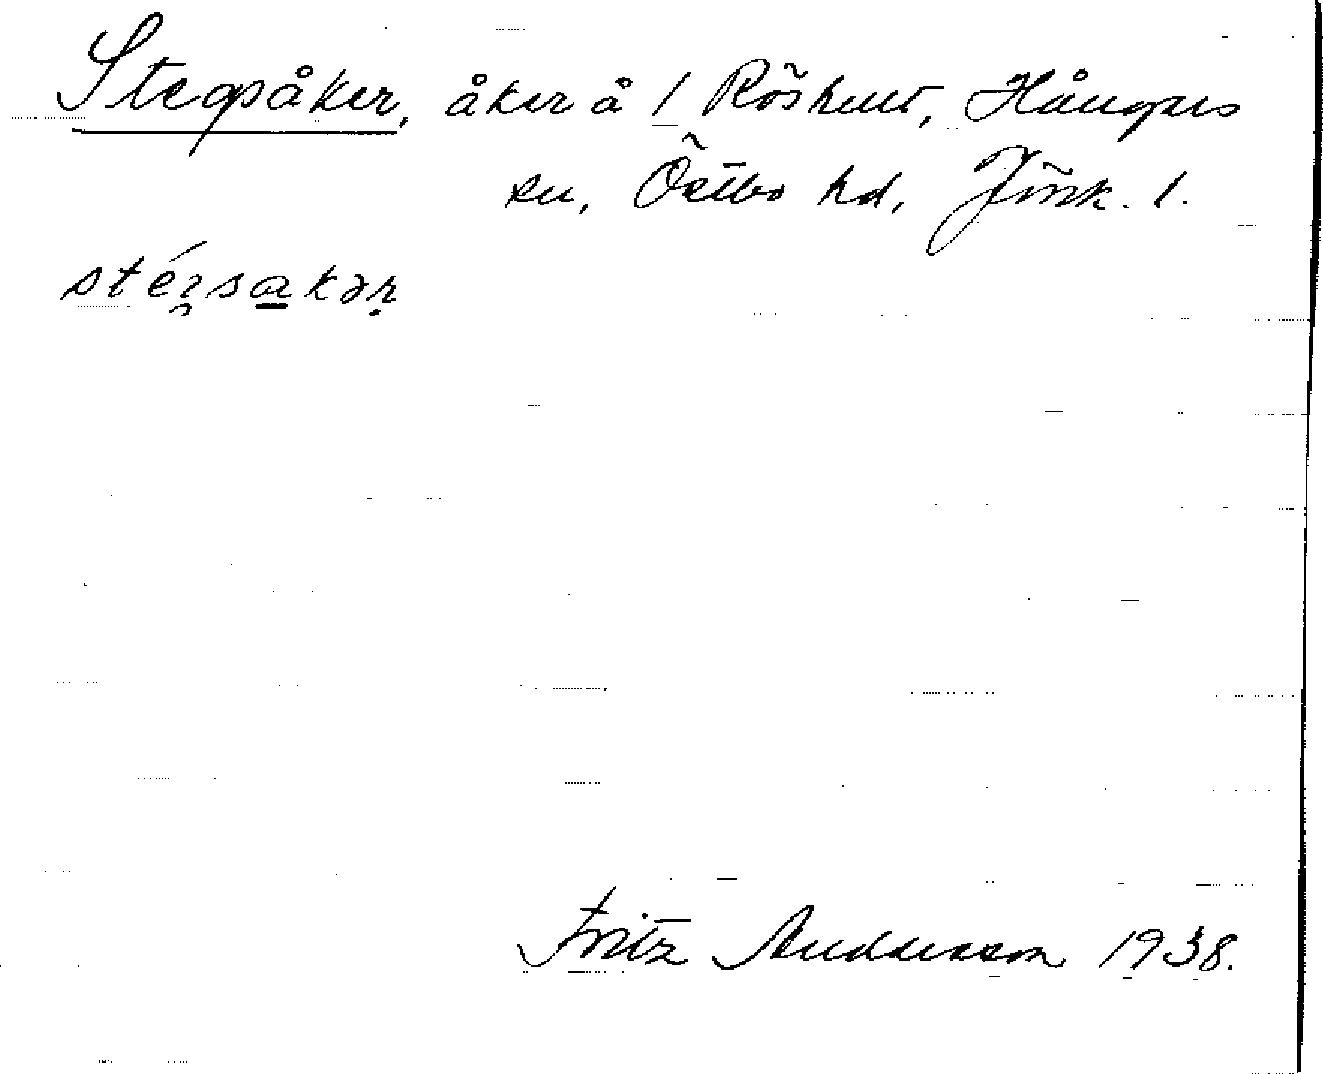 Stegsåker, åker å 1 Röshult, Hångers
sn, Östbo hd, Jönk. l.
stéi̯sakər
Fritz Andersson 1938.